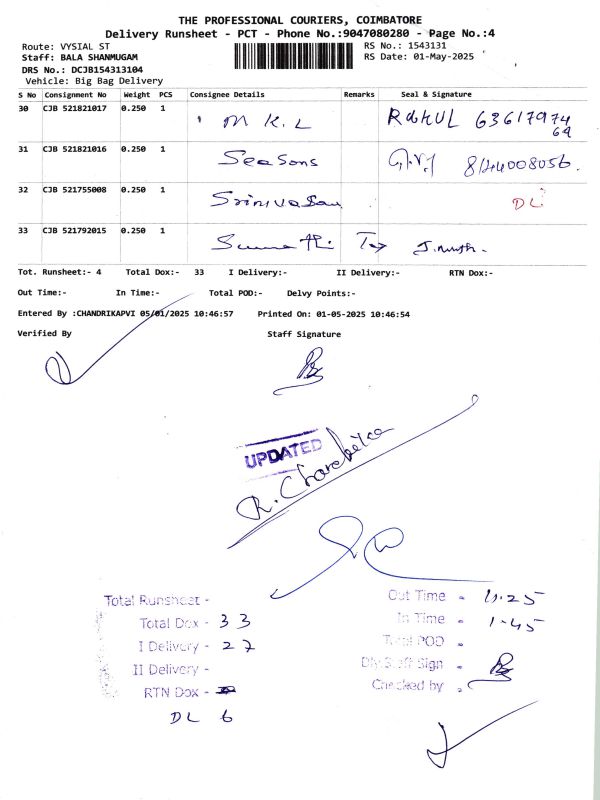 THE PROFESSIONAL COURIERS, COIMBATORE
Delivery Runsheet - PCT - Phone No.:9047080280 - Page No.:4
Route: VYSIAL ST RS No.: 1543131
Staff: BALA SHANMUGAM RS Date: 01-May-2025
DRS No.: DCJB154313104
Vehicle: Big Bag Delivery
S No Consignment No Weight PCS Consignee Details Remarks Seal & Signature
30 CJB 521821017 0.250 1 M K.L RAHUL 6361797469
31 CJB 521821016 0.250 1 Seasons 8144008056.
32 CJB 521755008 0.250 1 Srinivasan DL
33 CJB 521792015 0.250 1 Sumathi
Tot. Runsheet:- 4 Total Dox:- 33 I Delivery:- II Delivery:- RTN Dox:-
Out Time:- In Time:- Total POD:- Delvy Points:-
Entered By :CHANDRIKAPVI 05/01/2025 10:46:57 Printed On: 01-05-2025 10:46:54
Verified By Staff Signature
UPDATED
Total Runsheet - Out Time - 11.25
Total Dox - 33 In Time - 1.45
I Delivery - 27 Total POD -
II Delivery - Dly Staff Sign -
RTN Dox - Checked by -
DL 6